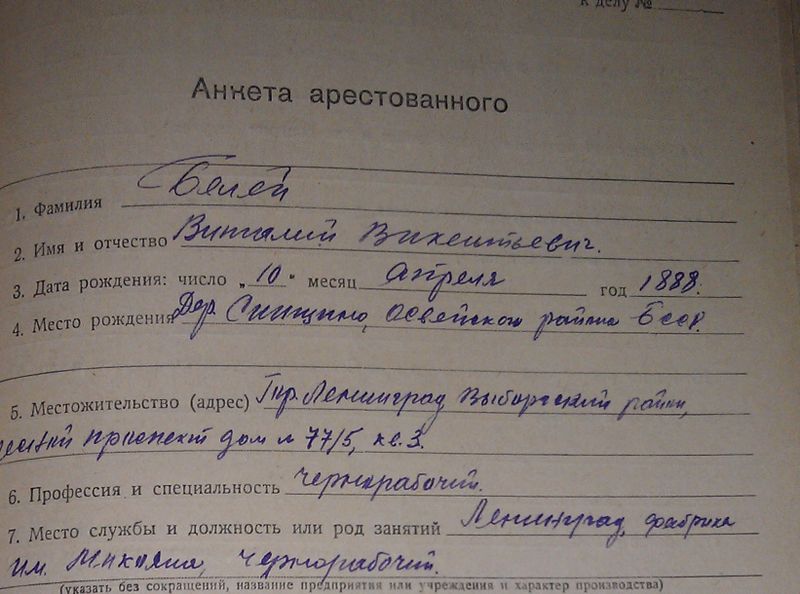 к делу №
Анкета арестованного
1. Фамилия Белей
2. Имя и отчество Виталий Викентьевич.
3. Дата рождения: число „10" месяц Апреля год 1888.
4. Место рождения Дер. Синицино, Освейского района Бсср.
5. Местожительство (адрес) Гор. Ленинград Выборгский район,
проспект дом № 77/5, кв. 3.
6. Профессия и специальность Чернорабочий.
7. Место службы и должность или род занятий Ленинград, фабрика
им. Микояна, Чернорабочий.
(указать без сокращений, название предприятия или учреждения и характер производства)